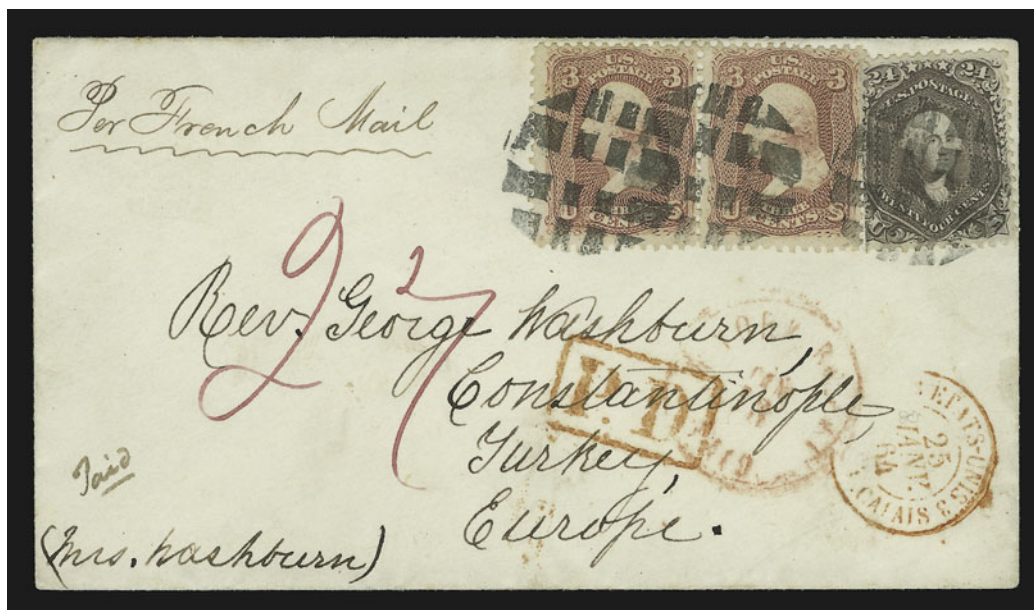 Per French Mail
3 U.S. POSTAGE 3
U THREE CENTS S
3 U.S. POSTAGE 3
U THREE CENTS S
24 24
U.S. POSTAGE
TWENTY FOUR CENTS
U
27
Rev. George Washburn,
Constantinople,
Turkey,
Europe.
P.D.
ETATS-UNIS
25
JANV.
64
CALAIS
Paid
(Mrs. Washburn)